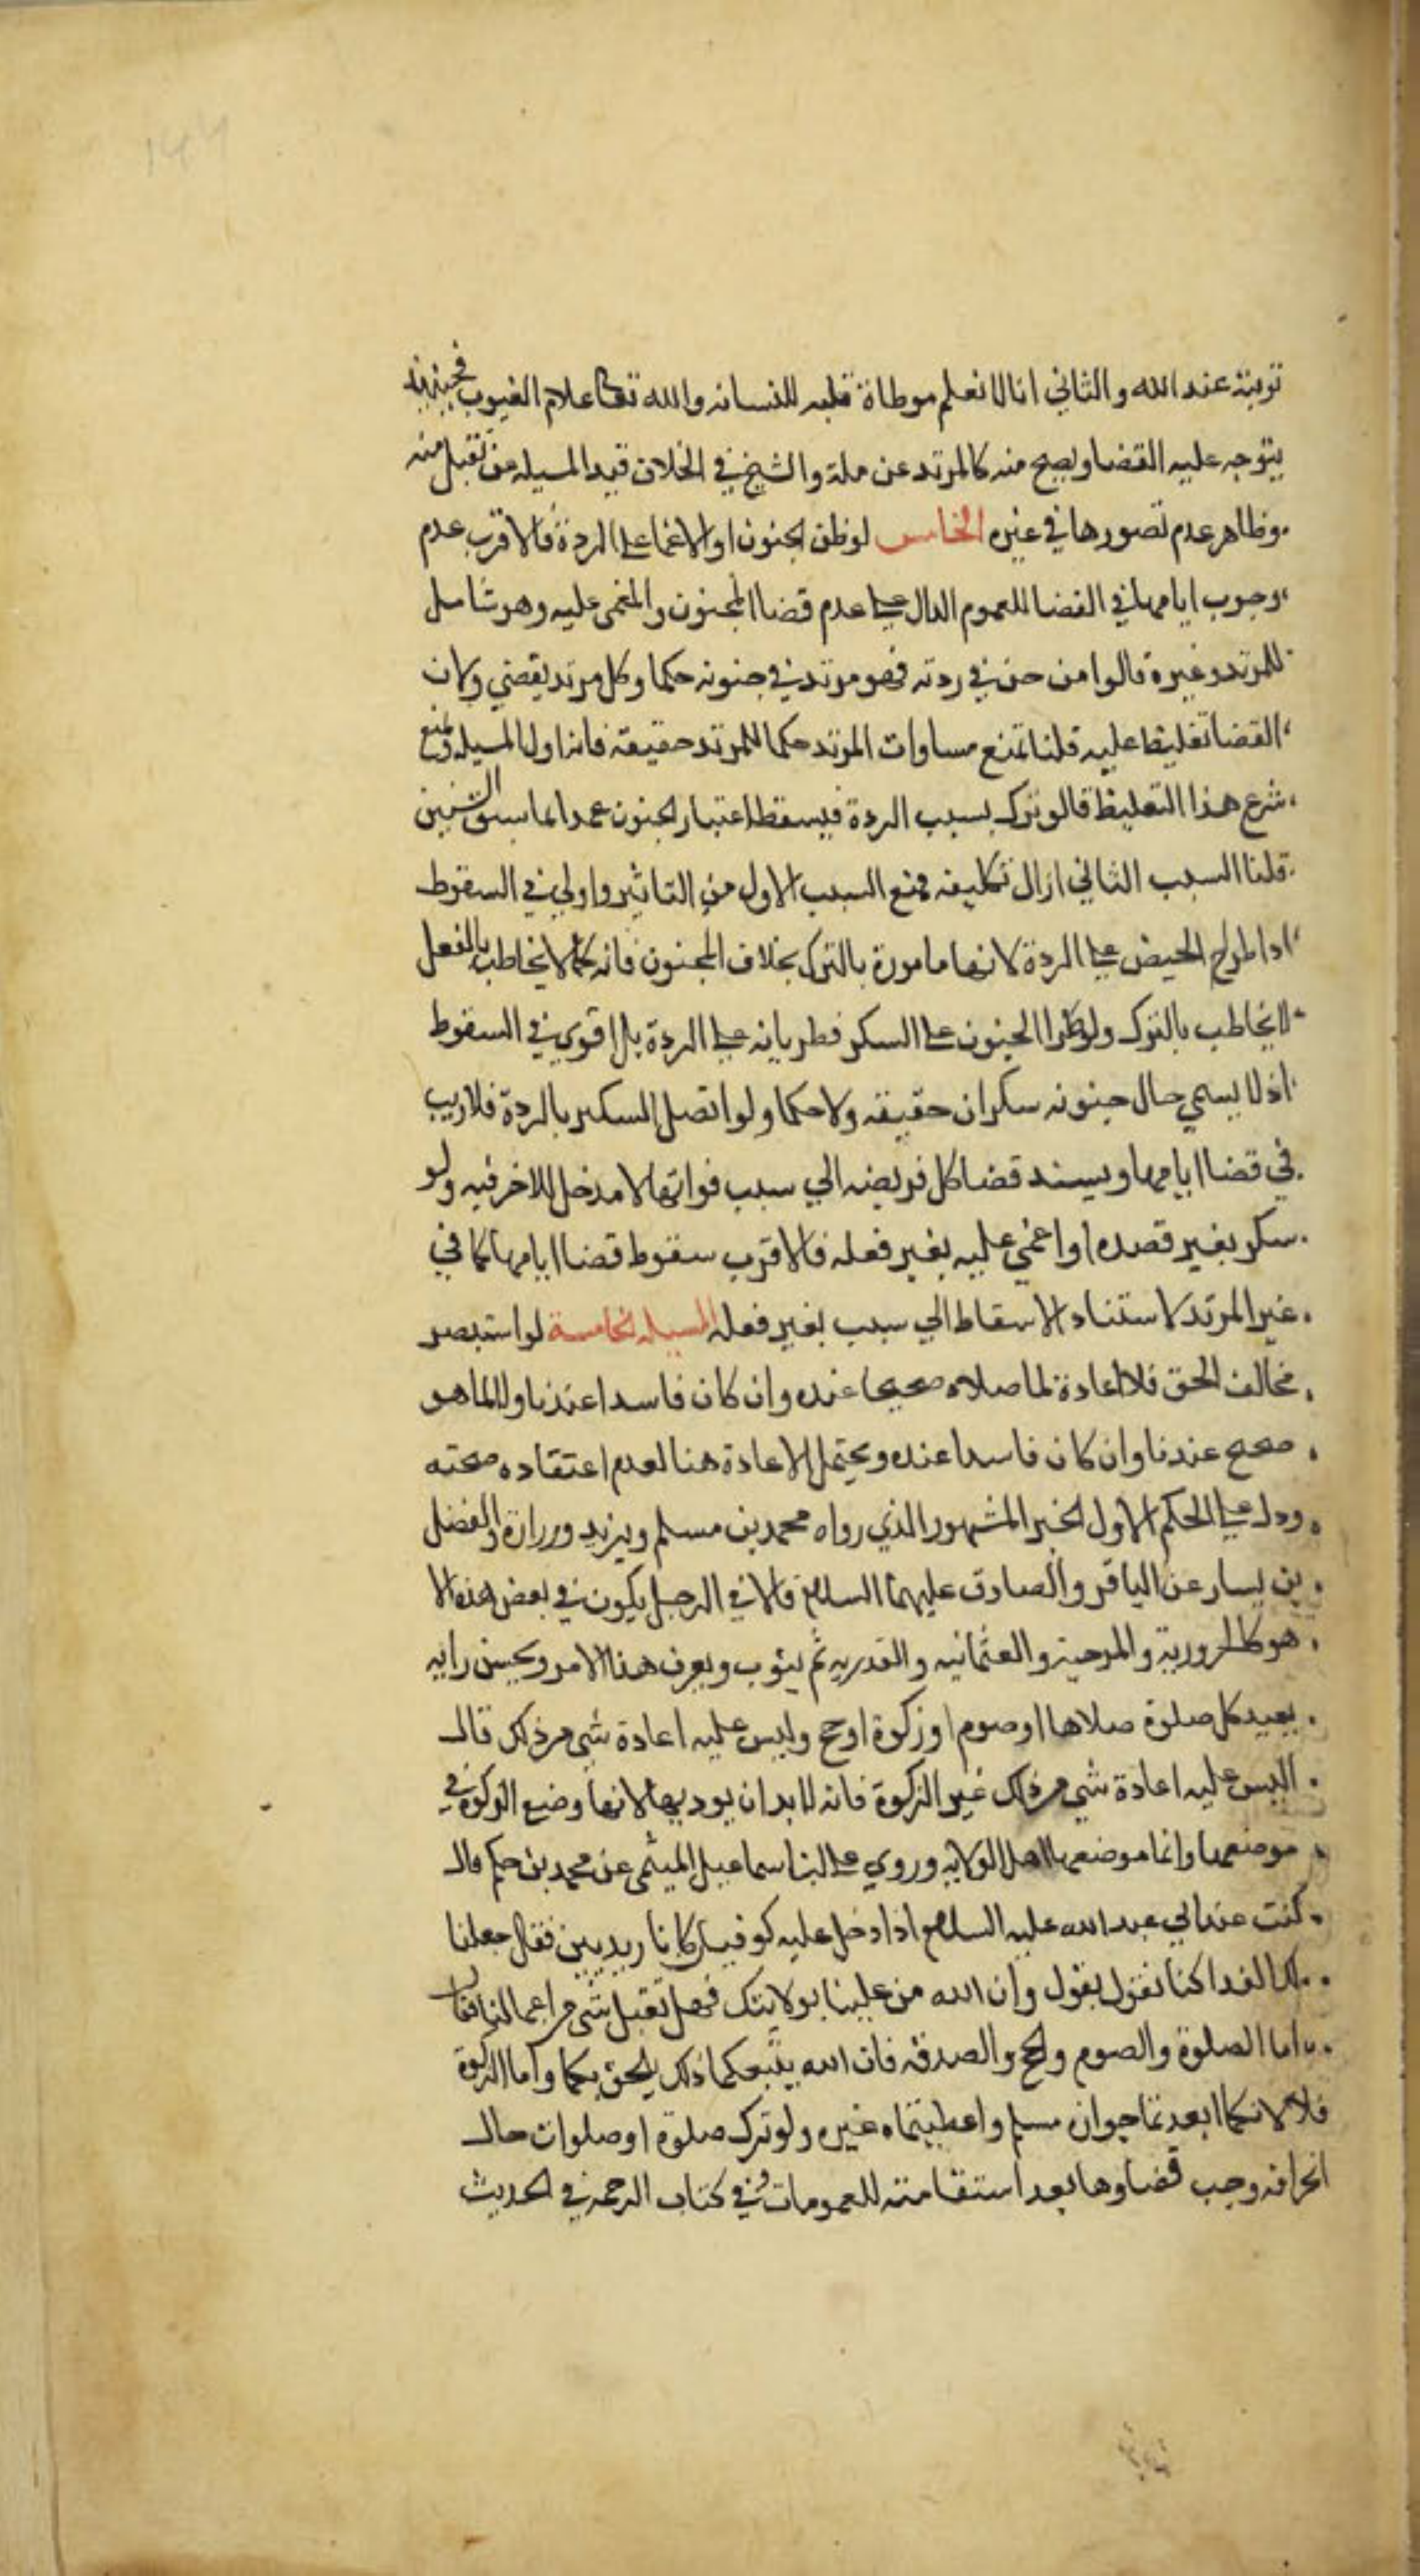 توبته عند الله والثاني انا لا نعلم موطاة قلبه للسانه والله تعالى علام الغيوب فحينئذ
يتوجه عليه القضا ويصح منه كالمرتد عن ملة والشيخ في الخلاف قيد المسيله من تقبل منه
وظاهر عدم تصورها في غيره الخامس لو ظن الجنون او الاغما على الردة فالاقرب عدم
وجوب ايامهما في القضا للعموم الدال على عدم قضا المجنون والمغمى عليه وهو شامل
للمرتد وغيره قالوا من جن في ردته فهو مرتد في جنونه حكما وكل مرتد يقضي ولان
القضا تغليظ عليه قلنا نمنع مساوات المرتد حكما للمرتد حقيقة فانه اول المسيله ونمنع
شرع هذا التغليظ قالوا ترك بسبب الردة فيسقط اعتبار الجنون عمدا لما سبق الشيئين
قلنا السبب الثاني ازال تكليفه فمنع السبب الاول من التاثير واولي في السقوط
اذا طرا الحيض على الردة لانها مامورة بالترك بخلاف المجنون فانه كما لا يخاطب بالفعل
لا يخاطب بالترك ولو طرا الجنون على السكر فطريانه على الردة بل اقوي في السقوط
اذ لا يسمي حال جنونه سكران حقيقه ولا حكما ولو اتصل السكر بالردة فلا ريب
في قضا ايامهما ويسند قضا كل فريضه الي سبب فواتها لا مدخل للاخر فيه ولو
سكر بغير قصده او اغمي عليه بغير فعله فالاقرب سقوط قضا ايامهما كما في
غير المرتد لاستناد الاسقاط الي سبب بغير فعله المسيله الخامسة لو استبصر
مخالف الحق فلا اعادة لما صلاه صحيحا عنده وان كان فاسدا عندنا ولا لما هو
صحيح عندنا وان كان فاسدا عنده ويحتمل الاعادة هنا لعدم اعتقاده صحته
ودل على الحكم الاول الخبر المشهور الذي رواه محمد بن مسلم وبريد وزرارة والفضل
بن يسار عن الباقر والصادق عليهما السلام قالا في الرجل يكون في بعض هذه الا
هوا كالحرورية والمرجية والعثمانيه والقدريه ثم يتوب ويعرف هذا الامر ويحسن رايه
يعيد كل صلوة صلاها او صوم او زكوة او حج وليس عليه اعادة شي من ذلك قال
ليس عليه اعادة شي من ذلك غير الزكوة فانه لا بد ان يوديها لانها وضع الزكوة في
موضعها وانما موضعها اهل الولايه وروي على ابن اسماعيل الميثمى عن محمد بن حكم قال
كنت عند ابي عبد الله عليه السلام اذا دخل عليه كوفيان كانا زيديين فقال جعلنا
لك الفدا كنا نقول بقول وان الله من علينا بولايتك فهل تقبل شي من اعمالنا فقال
اما الصلوة والصوم والحج والصدقه فان الله يتبعكما ذلك يلحق بكما واما الزكوة
فلا لانكما ابعدتما حوان مسلم واعطيتماه غيره ولو ترك صلوة او صلوات حال
انحرافه وجب قضاوها بعد استقامته للعمومات وفي كتاب الرحمه في الحديث